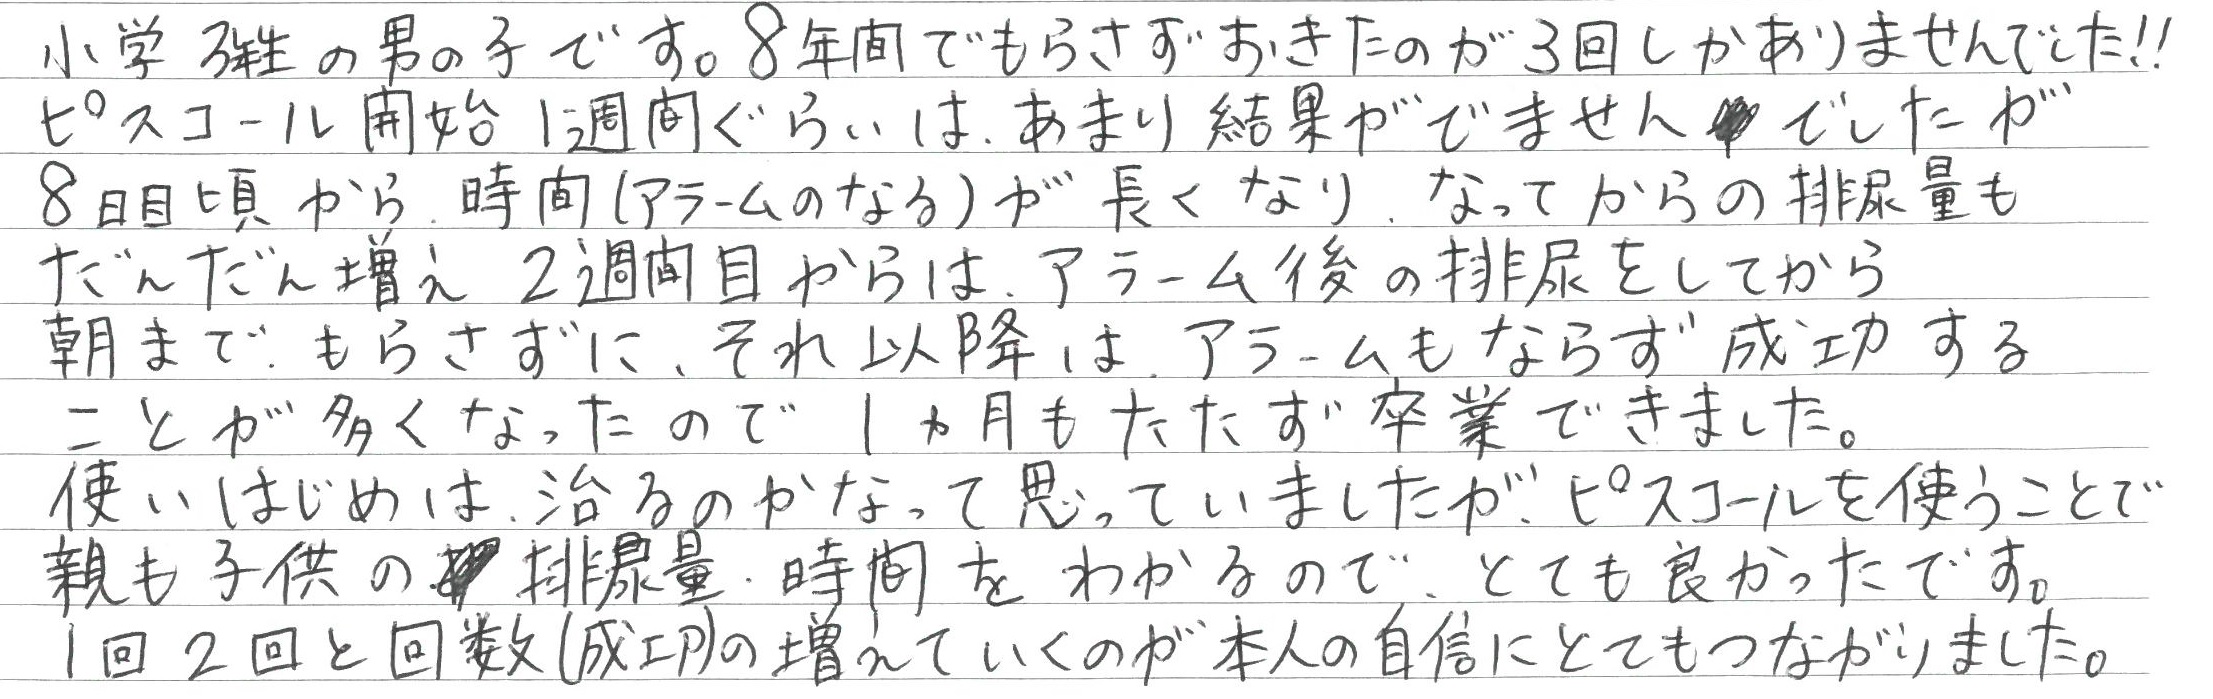 小学3年生の男の子です。8年間でもらさずおきたのが3回しかありませんでした!!
ピスコール開始1週間ぐらいは、あまり結果がでませんでしたが
8日目頃から、時間(アラームのなる)が長くなり、なってからの排尿量も
だんだん増え 2週間目からは、アラーム後の排尿をしてから
朝まで、もらさずに、それ以降は、アラームもならず成功する
ことが多くなったので 1ヵ月もたたず卒業できました。
使いはじめは、治るのかなって思っていましたが、ピスコールを使うことで
親も子供の排尿量、時間をわかるので、とても良かったです。
1回2回と回数(成功)の増えていくのが本人の自信にとてもつながりました。